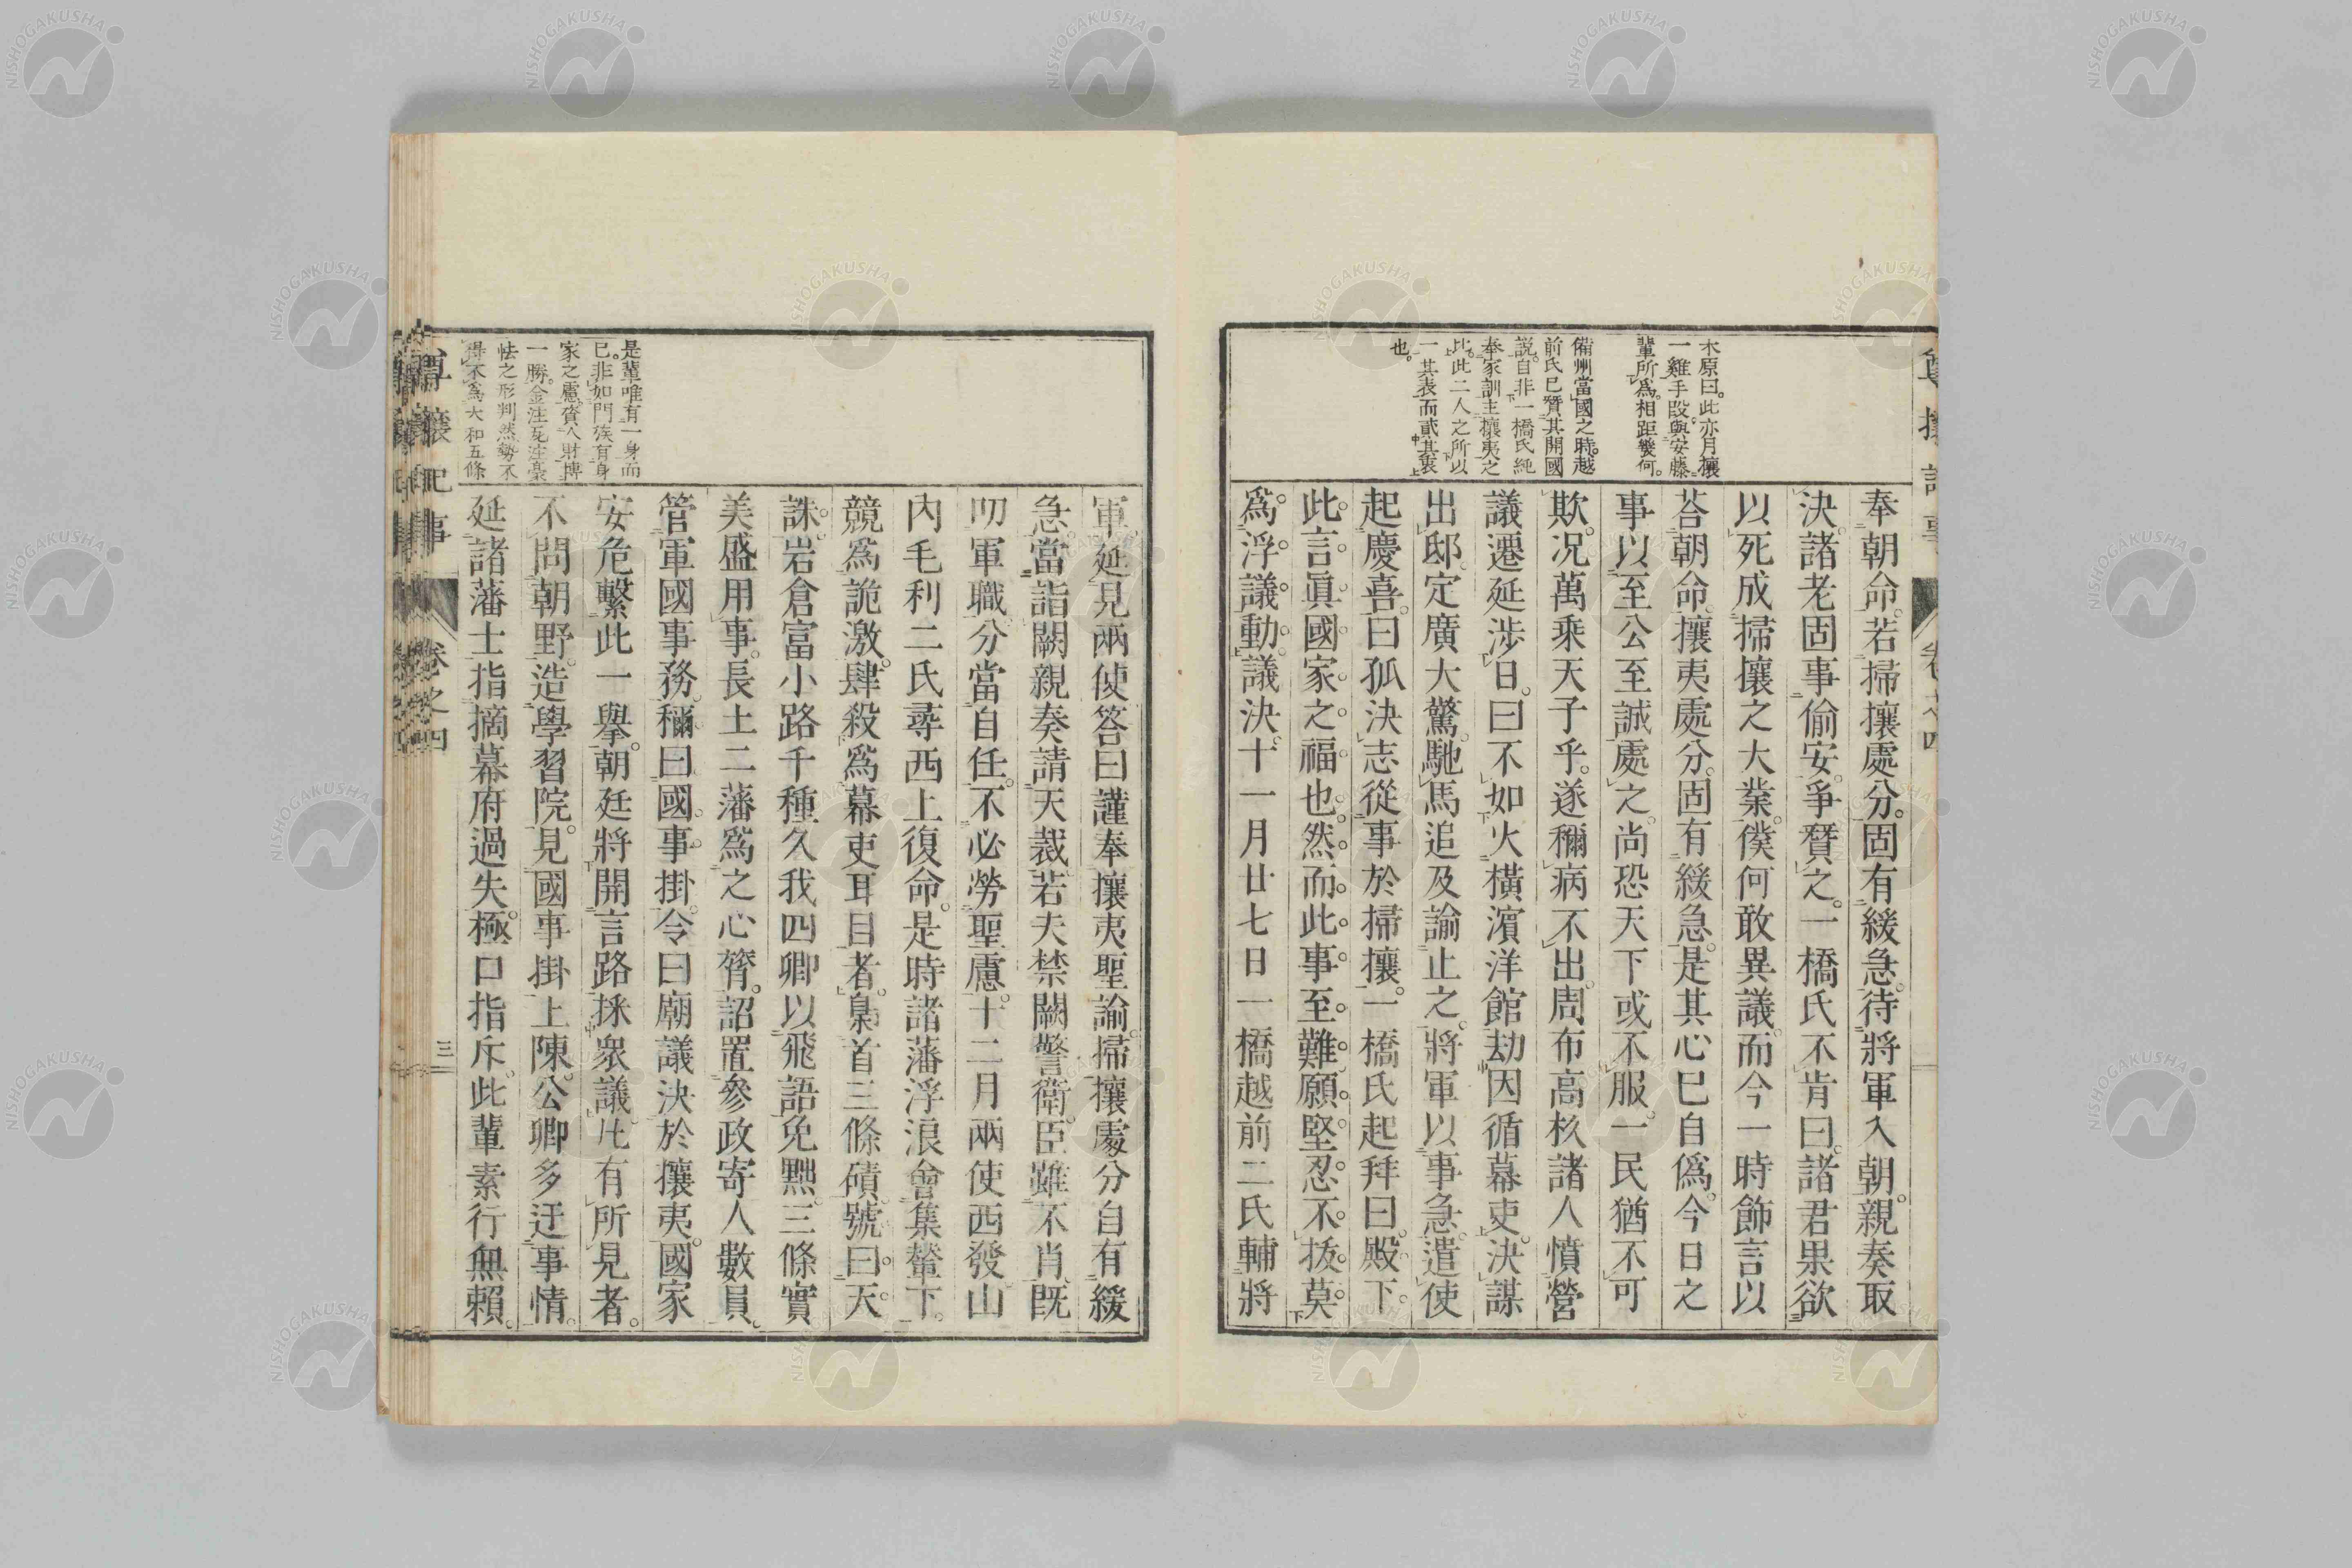 木原曰。此亦月攘
一雞手段。與安藤
輩所爲。相距幾何。
備州當國之時。越
前氏已贊其開國
說。自非一橋氏純
奉家訓主攘夷之
此。此二人之所以
一其表而貳其裏
也。
奉朝命。若掃攘處分。固有緩急。待將軍入朝。親奏取
決。諸老固事偷安。爭贊之。一橋氏不肯曰。諸君果欲
以死成掃攘之大業。僕何敢異議。而今一時飾言以
荅朝命。攘夷處分。固有緩急。是其心已自僞。今日之
事以至公至誠處之。尚恐天下或不服。一民猶不可
欺。况萬乘天子乎。遂稱病不出。周布高杉諸人憤營
議遷延涉日。曰不如火橫濱洋館劫因循幕吏。決謀
出邸。定廣大驚。馳馬追及諭止之。將軍以事急。遣使
起慶喜。曰孤決志從事於掃攘。一橋氏起拜曰。殿下。
此言。眞國家之福也。然而此事至難。願堅忍不拔。莫
爲浮議動。議決。十一月廿七日一橋越前二氏輔將
尊攘記事
卷之四
是輩唯有一身而
已。非如門族有身
家之慮。資人財摶
一勝。金注瓦注豪
怯之形判然。勢不
得不爲大和五條
軍延見兩使答曰謹奉攘夷聖諭。掃攘處分自有緩
急。當詣闕親奏請天裁。若夫禁闕警衞。臣雖不肖。既
叨軍職。分當自任。不必勞聖慮。十二月兩使西發。山
內毛利二氏尋西上復命。是時諸藩浮浪會集輦下。
競爲詭激。肆殺爲幕吏耳目者。梟首三條磧。號曰。天
誅。岩倉富小路千種久我四卿以飛語免黜。三條實
美盛用事。長土二藩爲之心膂。詔置參政寄人數員。
管軍國事務。稱曰國事掛。令曰廟議決於攘夷。國家
安危繫此一擧。朝廷將開言路採衆議。凡有所見者。
不問朝野。造學習院。見國事掛上陳。公卿多迂事情。
延諸藩士指摘幕府過失。極口指斥。此輩素行無賴。
尊攘記事
卷之四
三